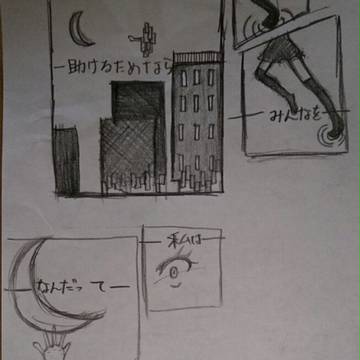 ―みんなを―
―助けるためなら
―私は―
―なんだって―